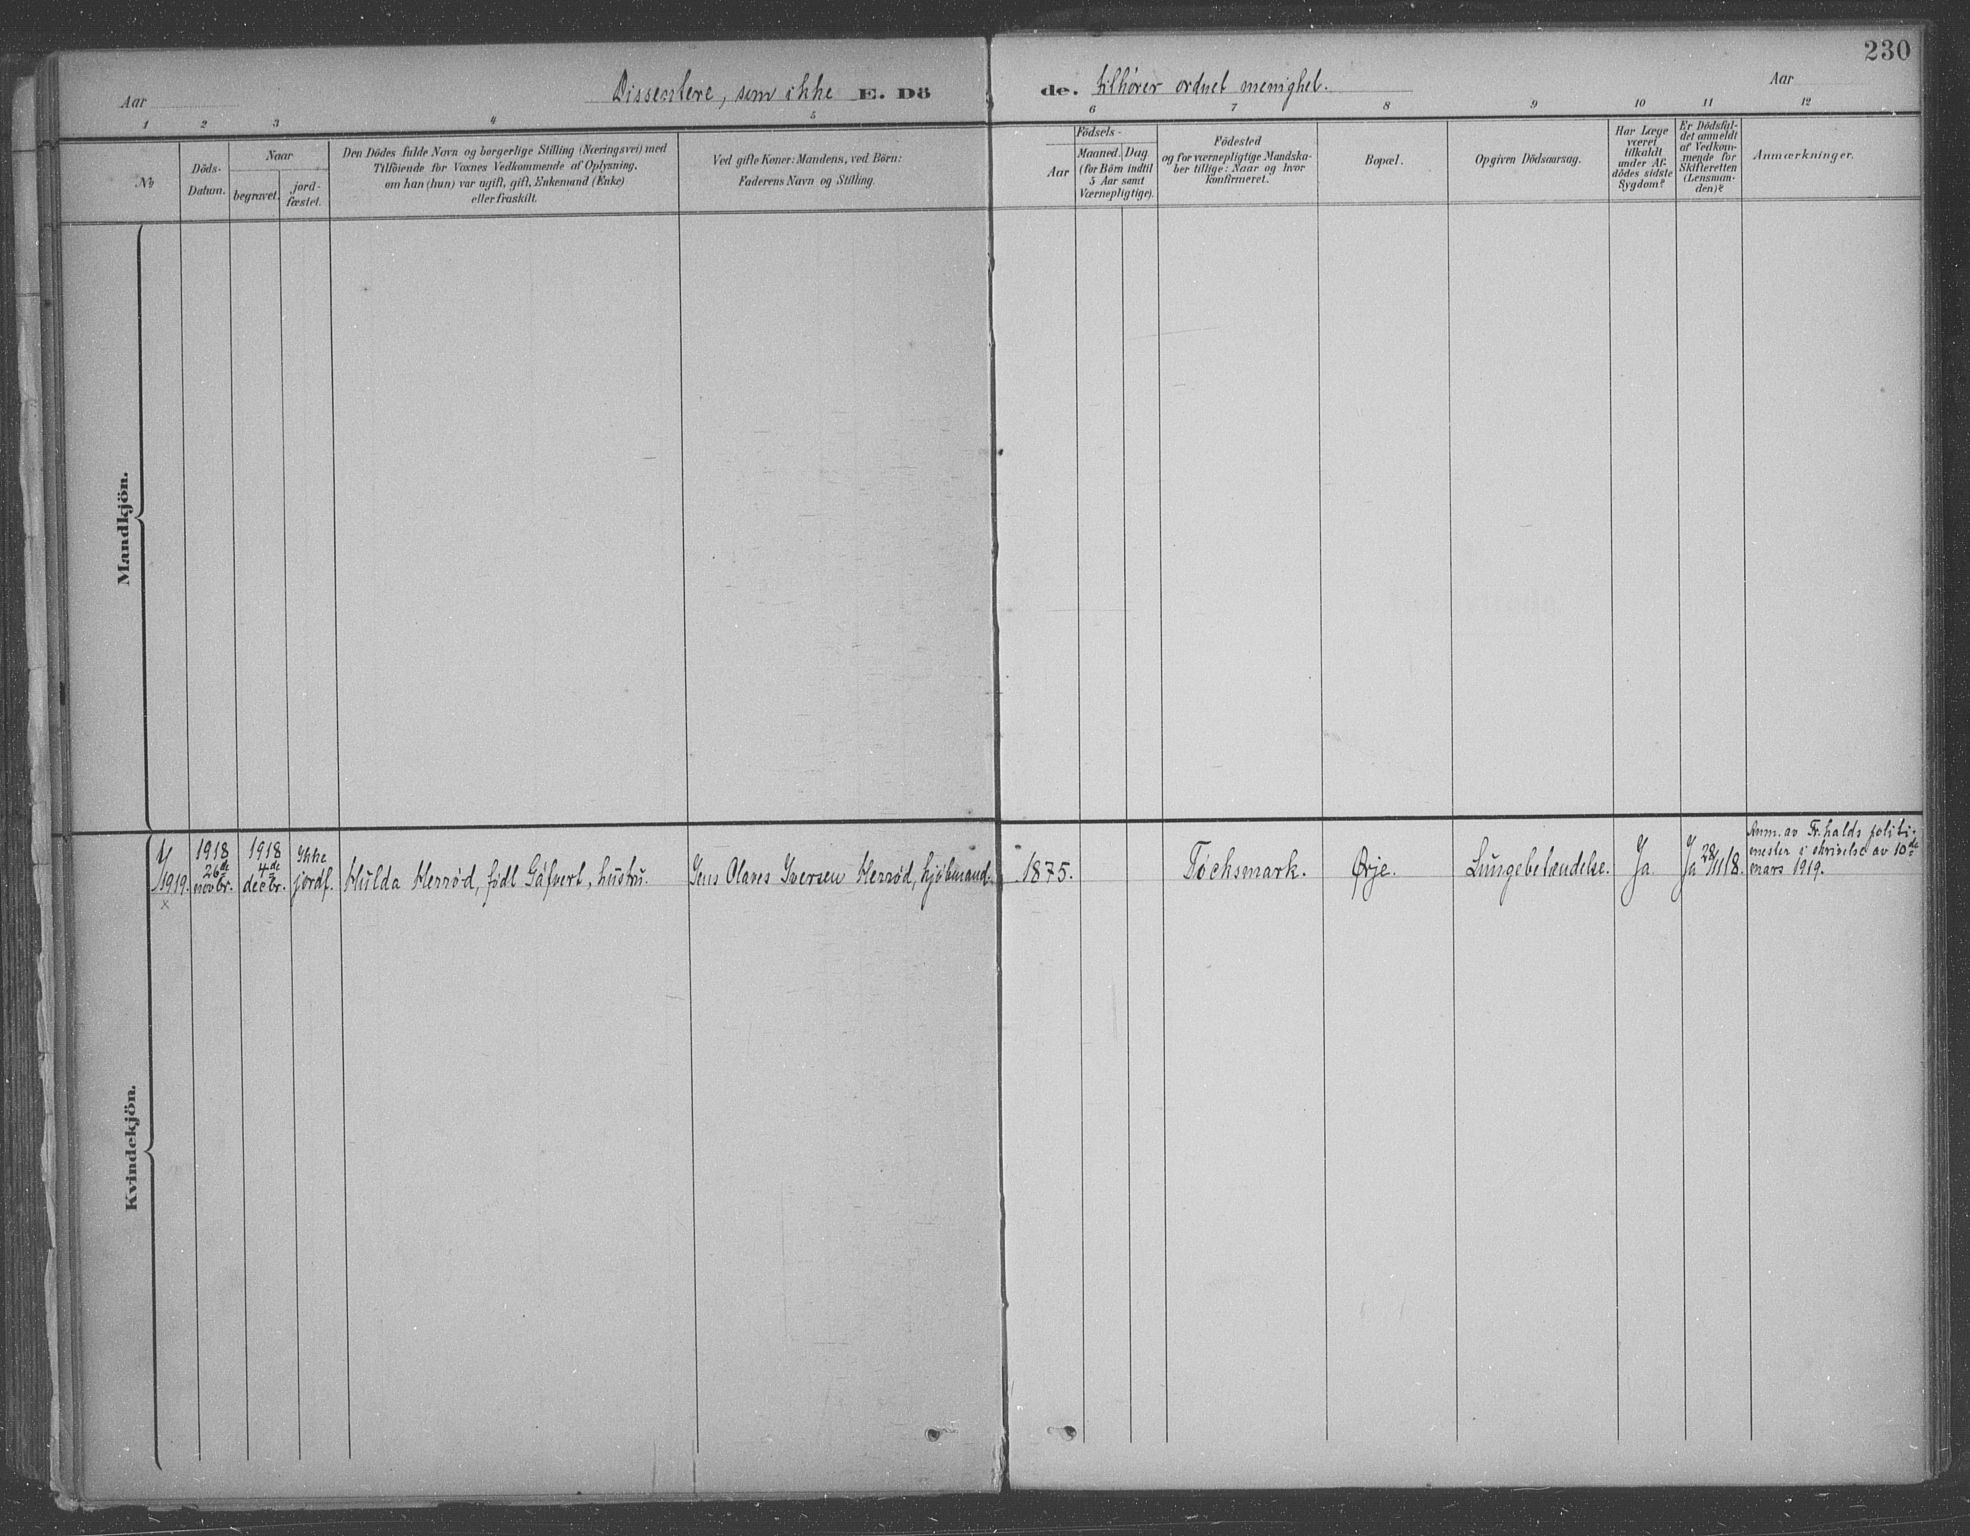 230
Aar
Dissentere, som ikke E. Dö
de. tilhører ordnet menighet.
Aar
1 2 3 4 5
6 7 8 9 10 11 12
№
Döds-
Datum.
Naar
begravet.
jord-
fæstet.
Den Dödes fulde Navn og borgerlige Stilling (Næringsvei) med
Tilföiende for Voxnes Vedkommende af Oplysning,
om han (hun) var ugift, gift, Enkemand (Enke)
eller fraskilt.
Ved gifte Koner: Mandens, ved Börn:
Faderens Navn og Stilling.
Födsels-
Aar
Maaned. Dag
(for Börn indtil
5 Aar samt
Værnepligtige).
Födested
og for værnepligtige Mandska-
ber tillige: Naar og hvor
konfirmeret.
Bopæl.
Opgiven Dödsaarsag.
Har Læge
været
tilkaldt
under Af-
dödes sidste
Sygdom?
Er Dödsfal-
det anmeldt
af Vedkom-
mende for
Skifteretten
(Lensman-
den)?
Anmærkninger.
Mandkjön.
Kvindekjön.
1/1919.
x
1918
26de
novbr.
1918
4de
decbr.
Ikke
jordf.
Hulda Herrød, födt Gäfvert, hustru.
Jens Olaves Iversen Herrød, kjöbmand.
1875.
Töcksmark.
Ørje.
Lungebetændelse.
Ja.
Ja 28/11 18.
Anm. av Fr.halds politi-
mester i skrivelse av 10de
mars 1919.